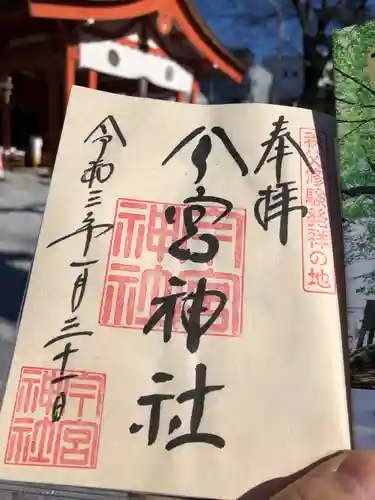 奉拝
秩父修験発祥の地
今宮神社
今宮
神社
令和三年一月三十一日
今宮
神社